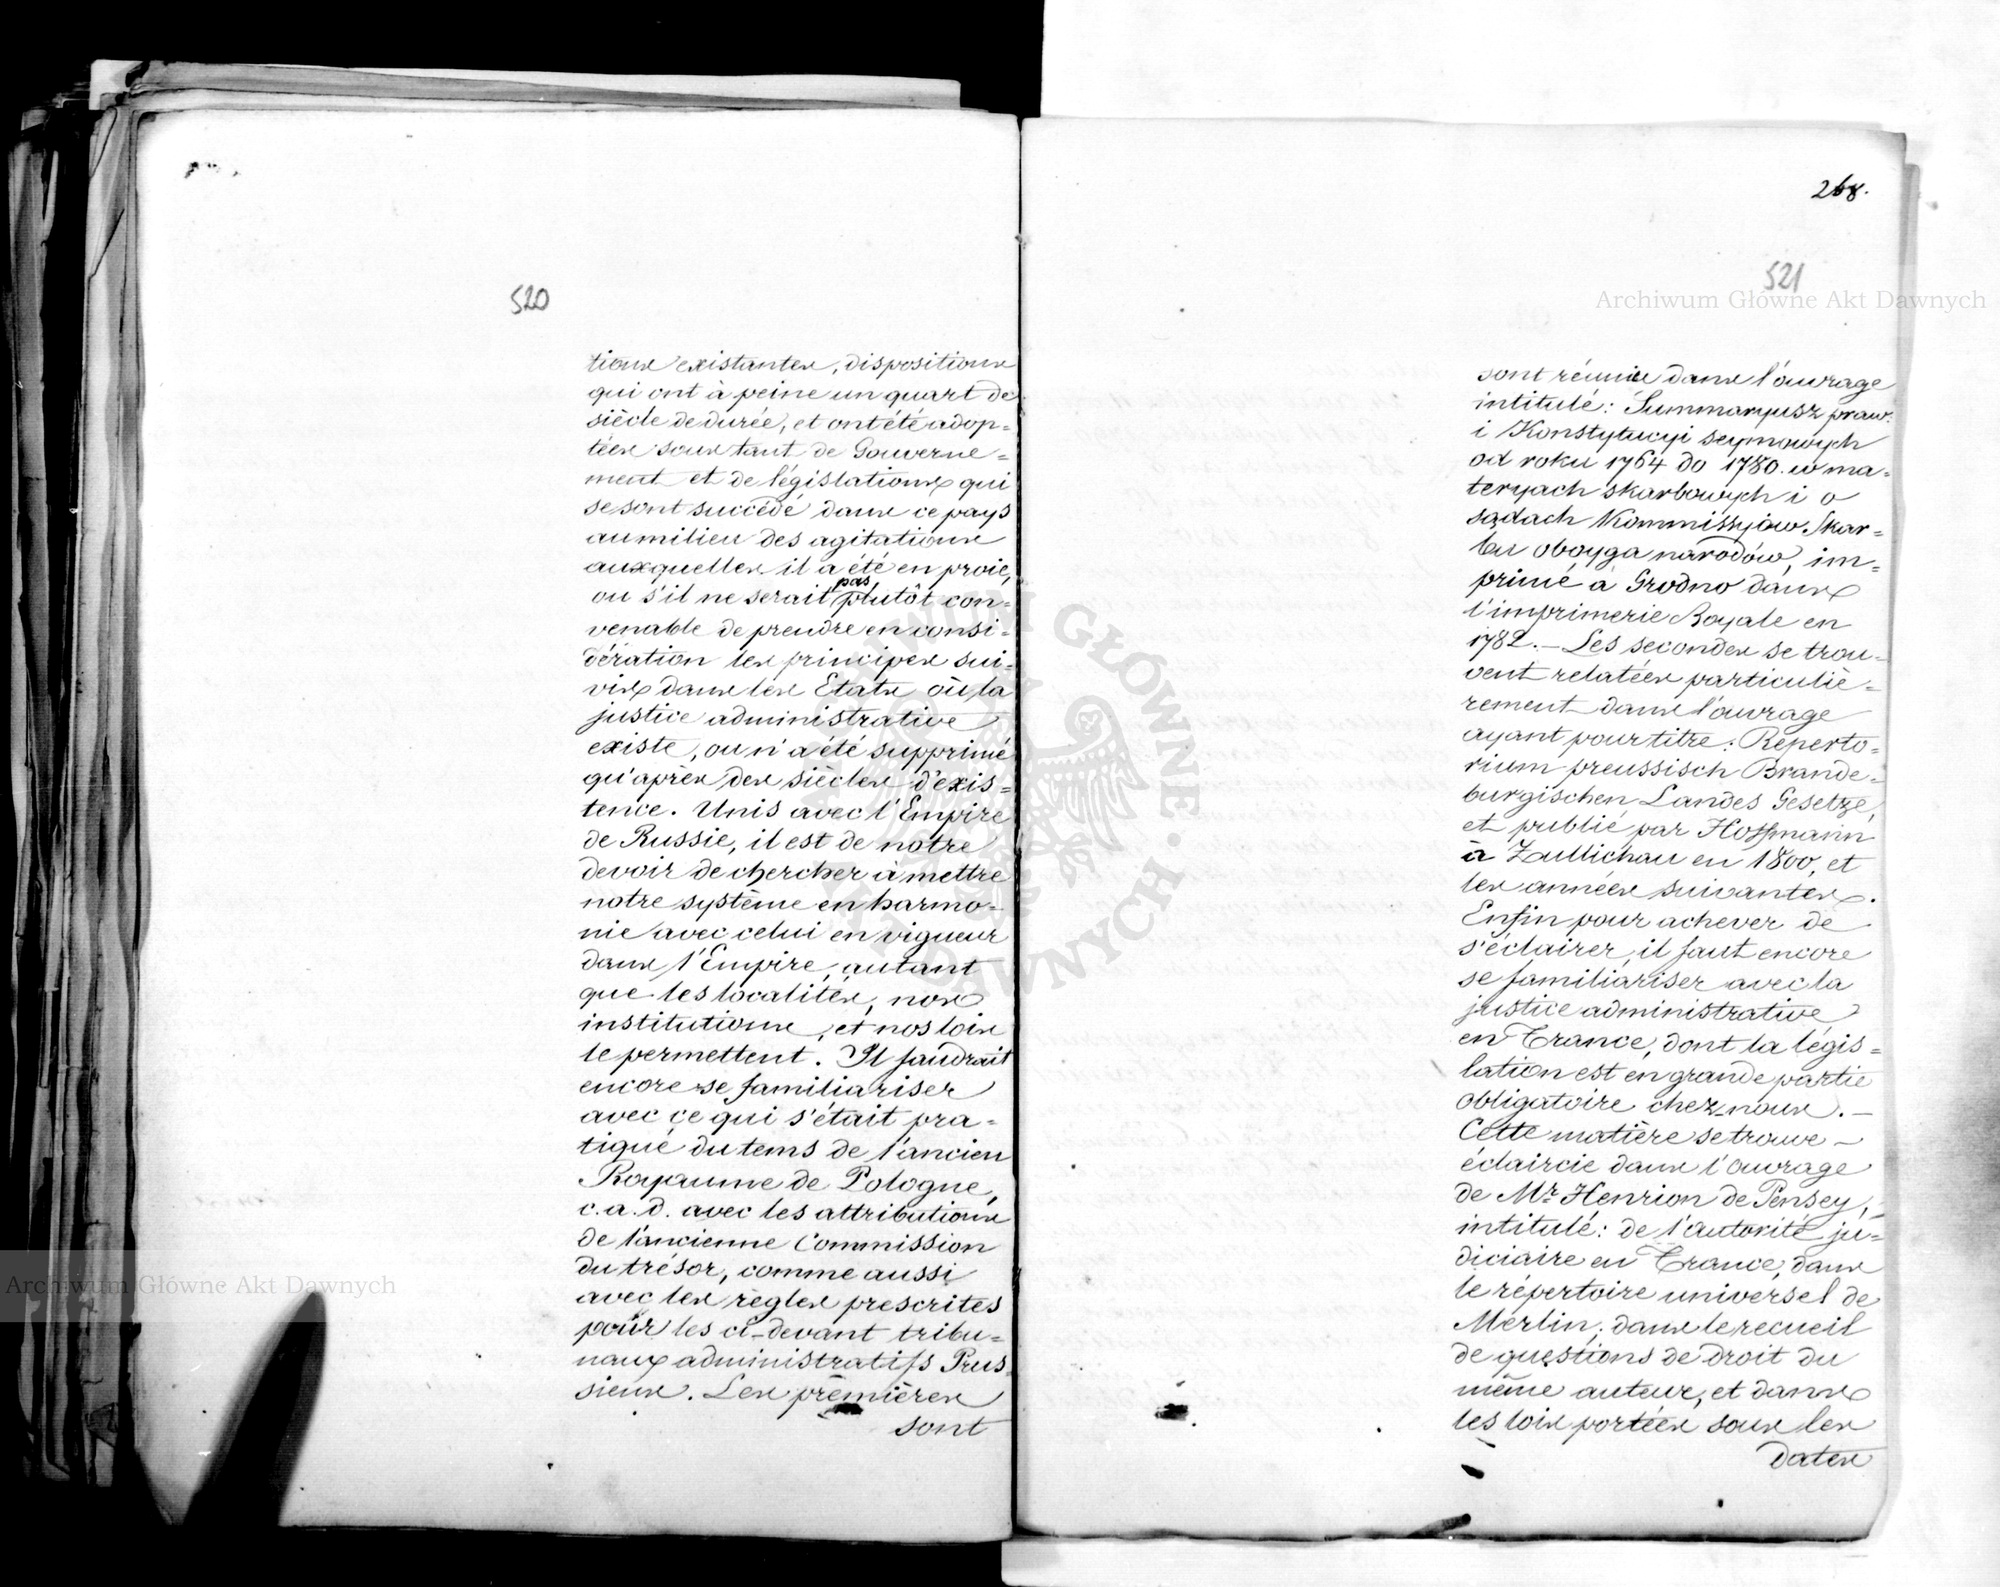 520
tions existantes, dispositions
qui ont à peine un quart de
siècle de durée, et ont été adop=
tées sous tant de Gouverne=
ment et de législations qui
se sont succédé dans ce pays
au milieu des agitations
auxquelles il a été en proie,
pas
ou s'il ne serait plutôt con=
venable de prendre en consi=
dération les principes sui=
vis dans les Etats où la
justice administrative
existe, ou n'a été supprimé
qu'après des siècles d'exis=
tence. Unis avec l'Empire
de Russie, il est de notre
devoir de chercher à mettre
notre système en harmo=
nie avec celui en vigueur
dans l'Empire, autant
que les localités, nos
institutions, et nos lois
le permettent. Il faudrait
encore se familiariser
avec ce qui s'était pra=
tiqué du tems de l'ancien
Royaume de Pologne,
c.a.d. avec les attributions
de l'ancienne Commission
du trésor, comme aussi
avec les règles prescrites
pour les ci-devant tribu=
naux administratifs Prus=
siens. Les prèmières
sont
268.
521
Archiwum Główne Akt Dawnych
sont réunies dans l'ouvrage
intitulé: Summaryusz praw.
i Konstytucyi seymowych
od roku 1764 do 1780. w ma=
teryach skarbowych i o
sądach Kommissyiow Skar=
bu oboyga narodów, im=
primé à Grodno dans
l'imprimerie Royale en
1782.— Les secondes se trou=
vent relatées particuliè=
rement dans l'ouvrage
ayant pour titre: Reperto=
rium preussisch Brande=
burgischen Landes Gesetze,
et publié par Hoffmann
à Zullichau en 1800, et
les années suivantes.
Enfin pour achever de
s'éclairer, il faut encore
se familiariser avec la
justice administrative
en France, dont la légis=
lation est en grande partie
obligatoire chez-nous.—
Cette matière se trouve —
éclaircie dans l'ouvrage
de Mr Henrion de Pensey,
intitulé: de l'autorité ju=
diciaire en France, dans
le répertoire universel de
Merlin, dans le recueil
de questions de droit du
même auteur, et dans
les lois portées sous les
dates
Archiwum Główne Akt Dawnych